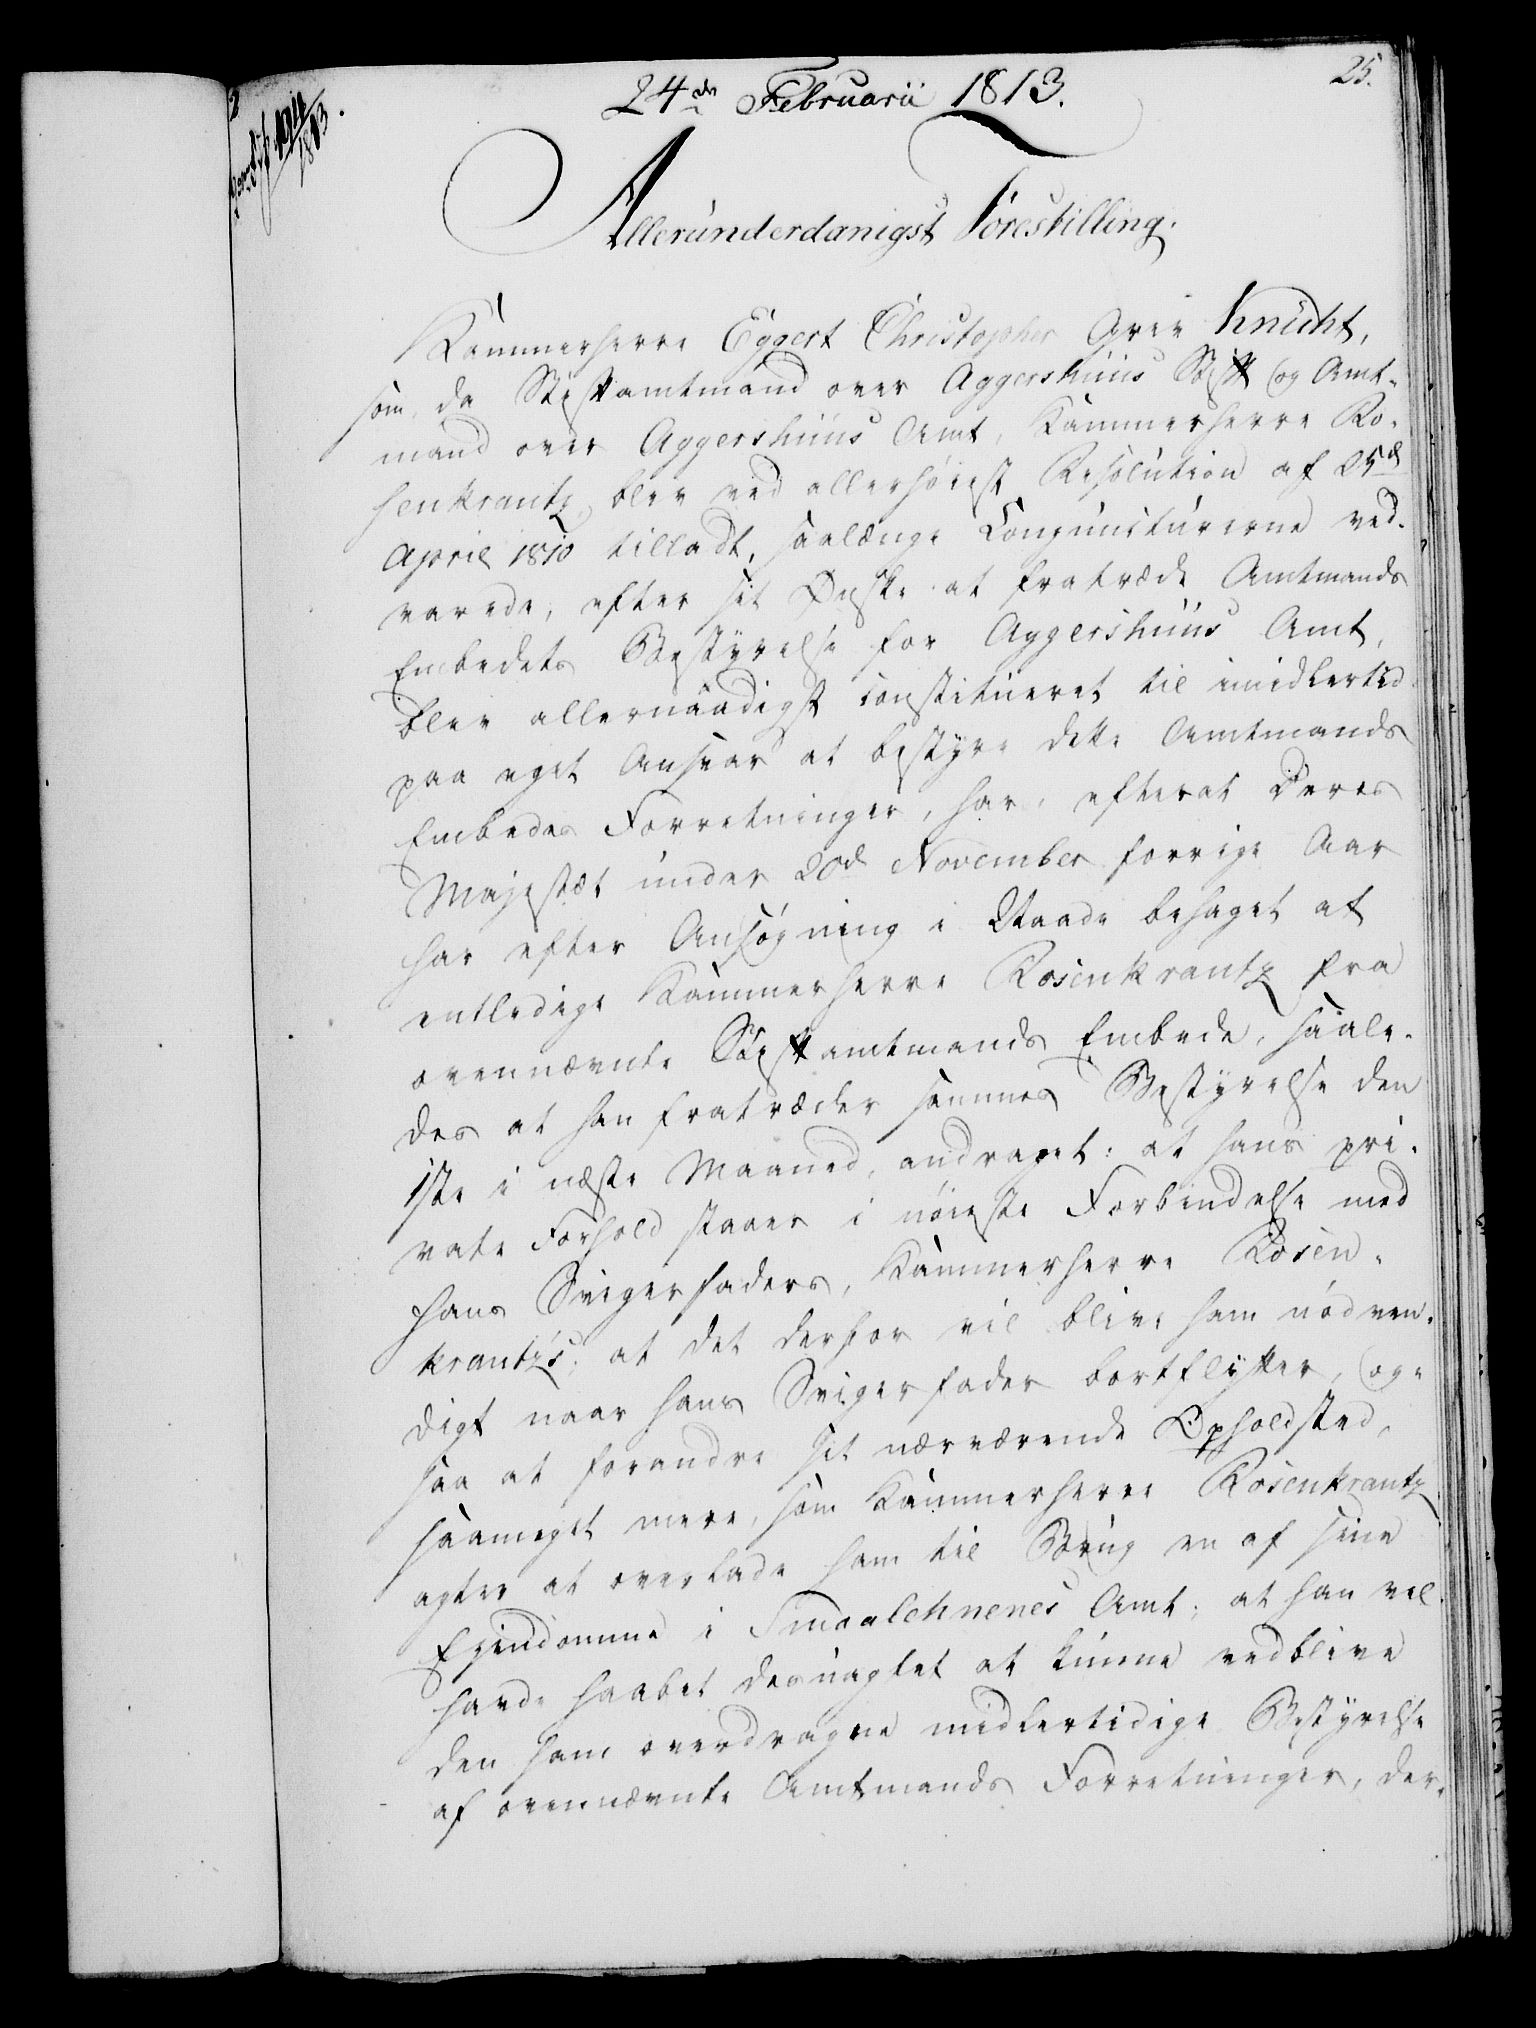 25.
24de Februarii 1813.
Allerunderdanigst Forestilling.
Kammerherre Eggert Christopher Grev Knuth,
som, da Stiftamtmand over Aggershuus Stift og Amt-
mand over Aggershuus Amt, Kammerherre Ro-
senkrantz, blev ved allerhøiest Resolution af 25d
April 1810 tilladt, saalænge Conjuncturerne ved-
varede, efter sit Ønske at fratræde Amtmands
Embedets Bestyrelse for Aggershuus Amt,
blev allernaadigst constitueret til imidlertid
paa eget Ansvar at bestyre dette Amtmands
Embedes Forretninger, har, efterat Deres
Majestæt under 20de November forrige Aar
har efter Ansøgning i Naade behaget at
entledige Kammerherre Rosenkrantz fra
ovennævnte Stiftamtmands Embede, saale-
des at han fratræder sammes Bestyrelse den
1ste i næste Maaned, andraget: at hans pri-
vate Forhold staaer i nøieste Forbindelse med
hans Svigerfaders, Kammerherre Rosen-
krantz's; at det derfor vil blive ham nødven-
digt naar hans Svigerfader bortflytter, og-
saa at forandre sit nærværende Opholdsted,
saameget mere, som Kammerherre Rosenkrantz
agter at overlade ham til Brug en af sine
Ejendomme i Smaalehnenes Amt; at han vel
havde haabet desuagtet at kunne vedblive
den ham overdragne midlertidige Bestyrelse
af ovennævnte Amtmands Forretninger, der-